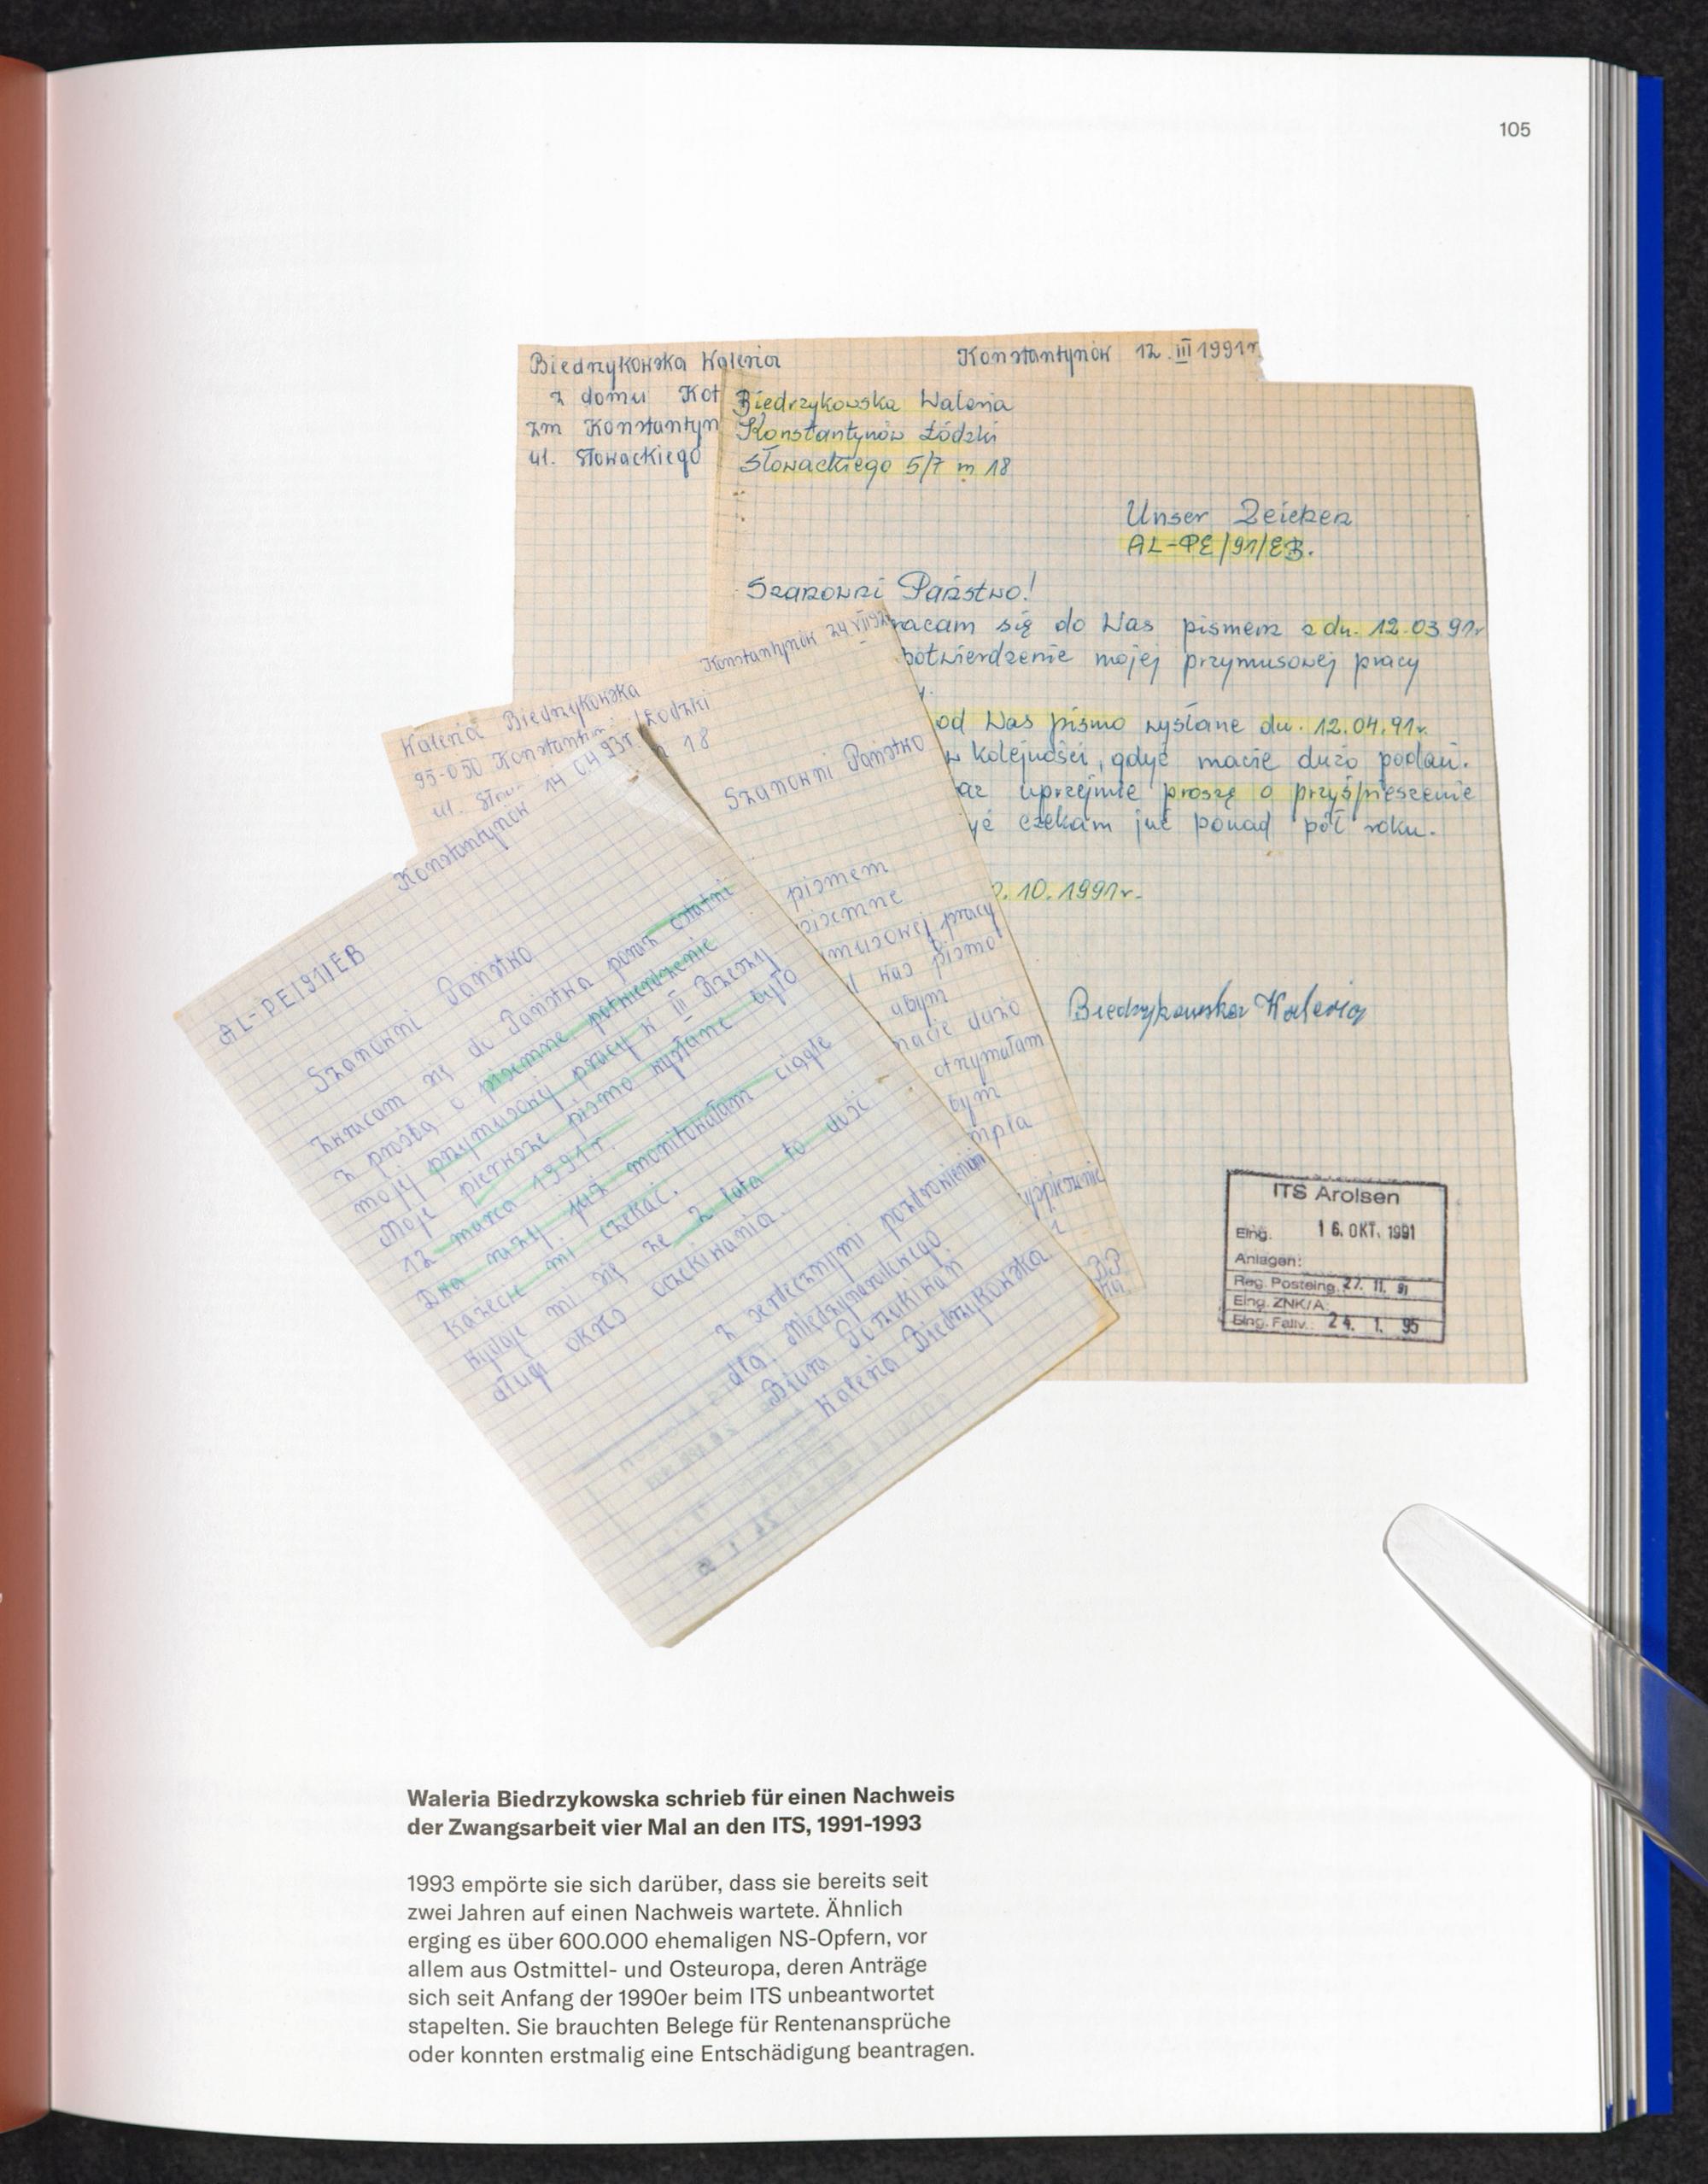 105
Biedrzykowska Waleria
Konstantynów 12.III 1991r
z domu Kot
zm Konstantyn
ul. Słowackiego
Biedrzykowska Waleria
Konstantynów Łódzki
Słowackiego 5/7 m 18
Unser Zeichen
AL-PE/91/EB.
Szanowni Państwo!
racam się do Was pismem z dn. 12.03.91r
potwierdzenie mojej przymusowej pracy
y.
od Was pismo wysłane dn. 12.04.91r.
w kolejności, gdyż macie dużo podań.
az uprzejmie proszę o przyśpieszenie
yż czekam już ponad pół roku.
.10.1991r.
Biedrzykowska Waleria
ITS Arolsen
Eing. 16. OKT. 1991
Anlagen:
Reg. Posteing. 27. 11. 91
Eing. ZNK/A:
Eing. Fallv.: 24. 1. 95
Konstantynów 24.VII
Waleria Biedrzykowska
95-050 Konstantyn Łódzki
ul. Słow 18
Szanowni Państwo
pismem
pisemne
musowej pracy
Was pismo
abym
macie dużo
otrzymałam
bym
mpla
yśpieszenie
Konstantynów 14 04 93r
AL-PE/91/EB
Szanowni Państwo
Zwracam się do Państwa poraz ostatni
z prośbą o pisemne potwierdzenie
mojej przymusowej pracy w III Rzeszy
Moje pierwsze pismo wysłane było
12 marca 1991 r.
Dwa razy już monitowałam ciągle
każecie mi czekać.
Wydaje mi się że 2 lata to dość
długi okres oczekiwania.
Z serdecznymi pozdrowieniami
dla Międzynarodowego
Biura Poszukiwań
Waleria Biedrzykowska
Waleria Biedrzykowska schrieb für einen Nachweis
der Zwangsarbeit vier Mal an den ITS, 1991-1993
1993 empörte sie sich darüber, dass sie bereits seit
zwei Jahren auf einen Nachweis wartete. Ähnlich
erging es über 600.000 ehemaligen NS-Opfern, vor
allem aus Ostmittel- und Osteuropa, deren Anträge
sich seit Anfang der 1990er beim ITS unbeantwortet
stapelten. Sie brauchten Belege für Rentenansprüche
oder konnten erstmalig eine Entschädigung beantragen.